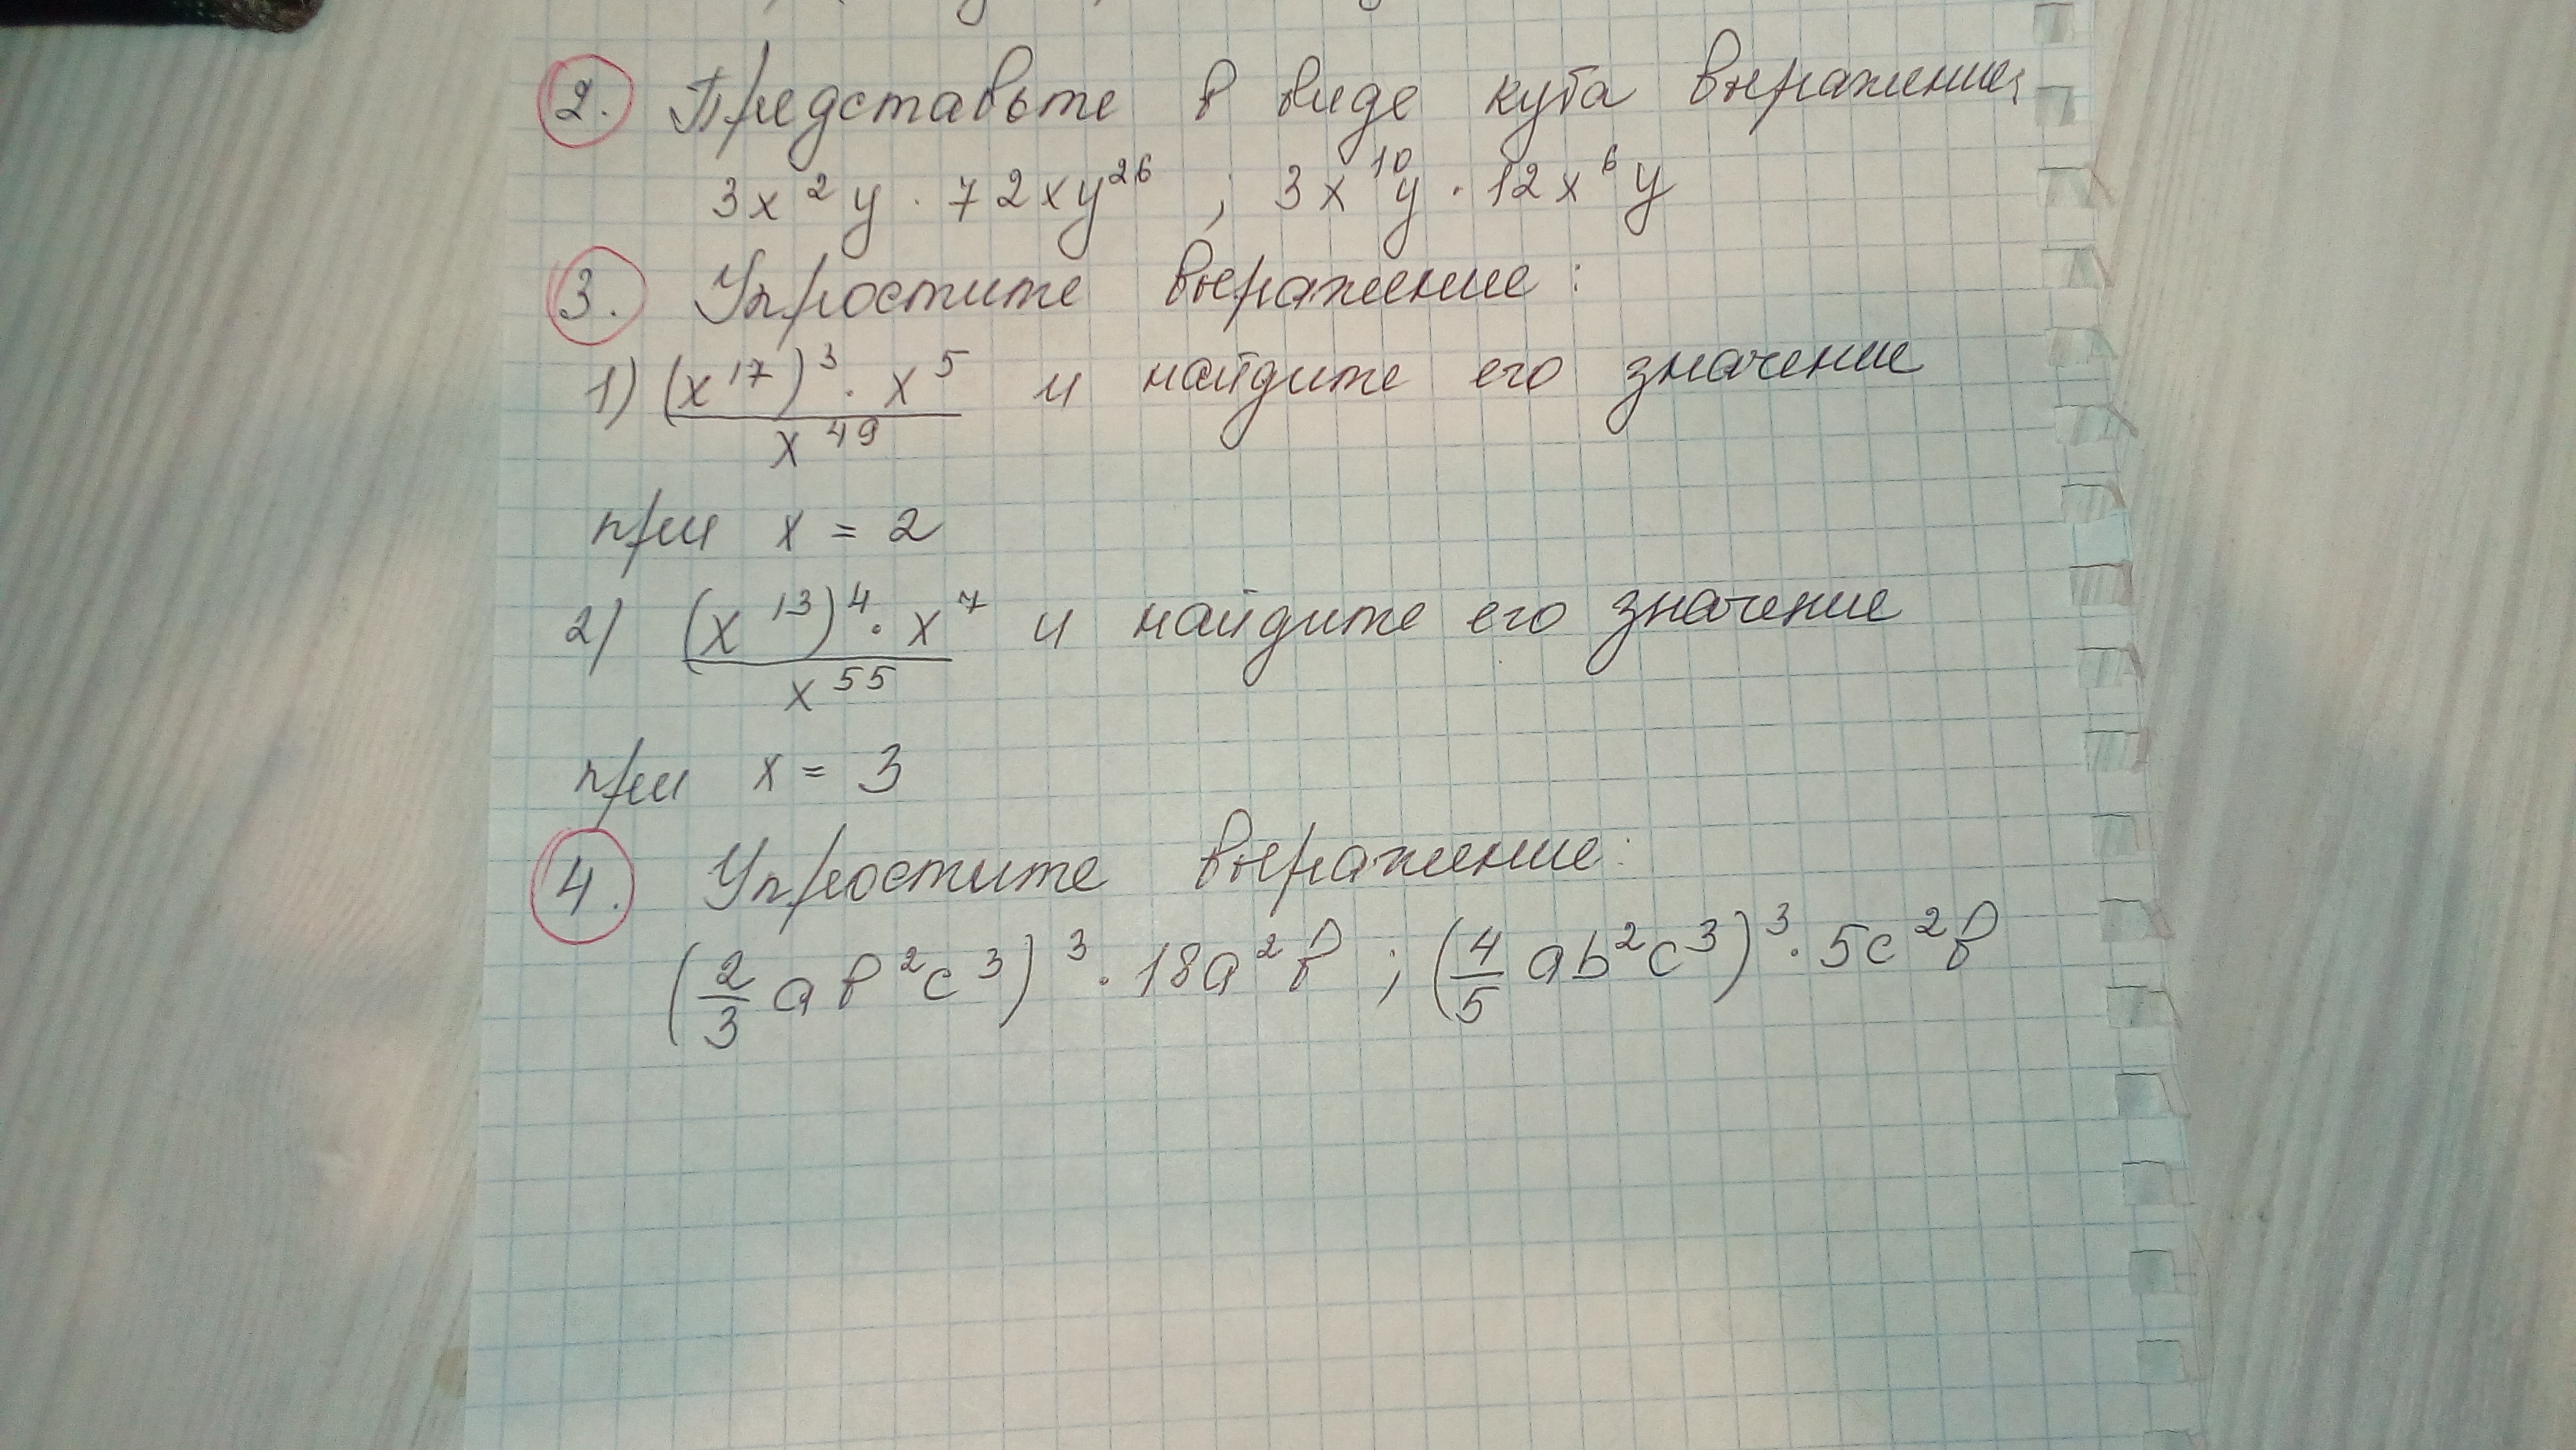 2. Представьте в виде куба выражения
3x²y · 72xy²⁶ ; 3x¹⁰y · 12x⁶y
3. Упростите выражение:
1) (x¹⁷)³ · x⁵ / x⁴⁹ и найдите его значение
при x = 2
2) (x¹³)⁴ · x⁷ / x⁵⁵ и найдите его значение
при x = 3
4. Упростите выражение:
(2/3 ab²c³)³ · 18a²b ; (4/5 ab²c³)³ · 5c²b